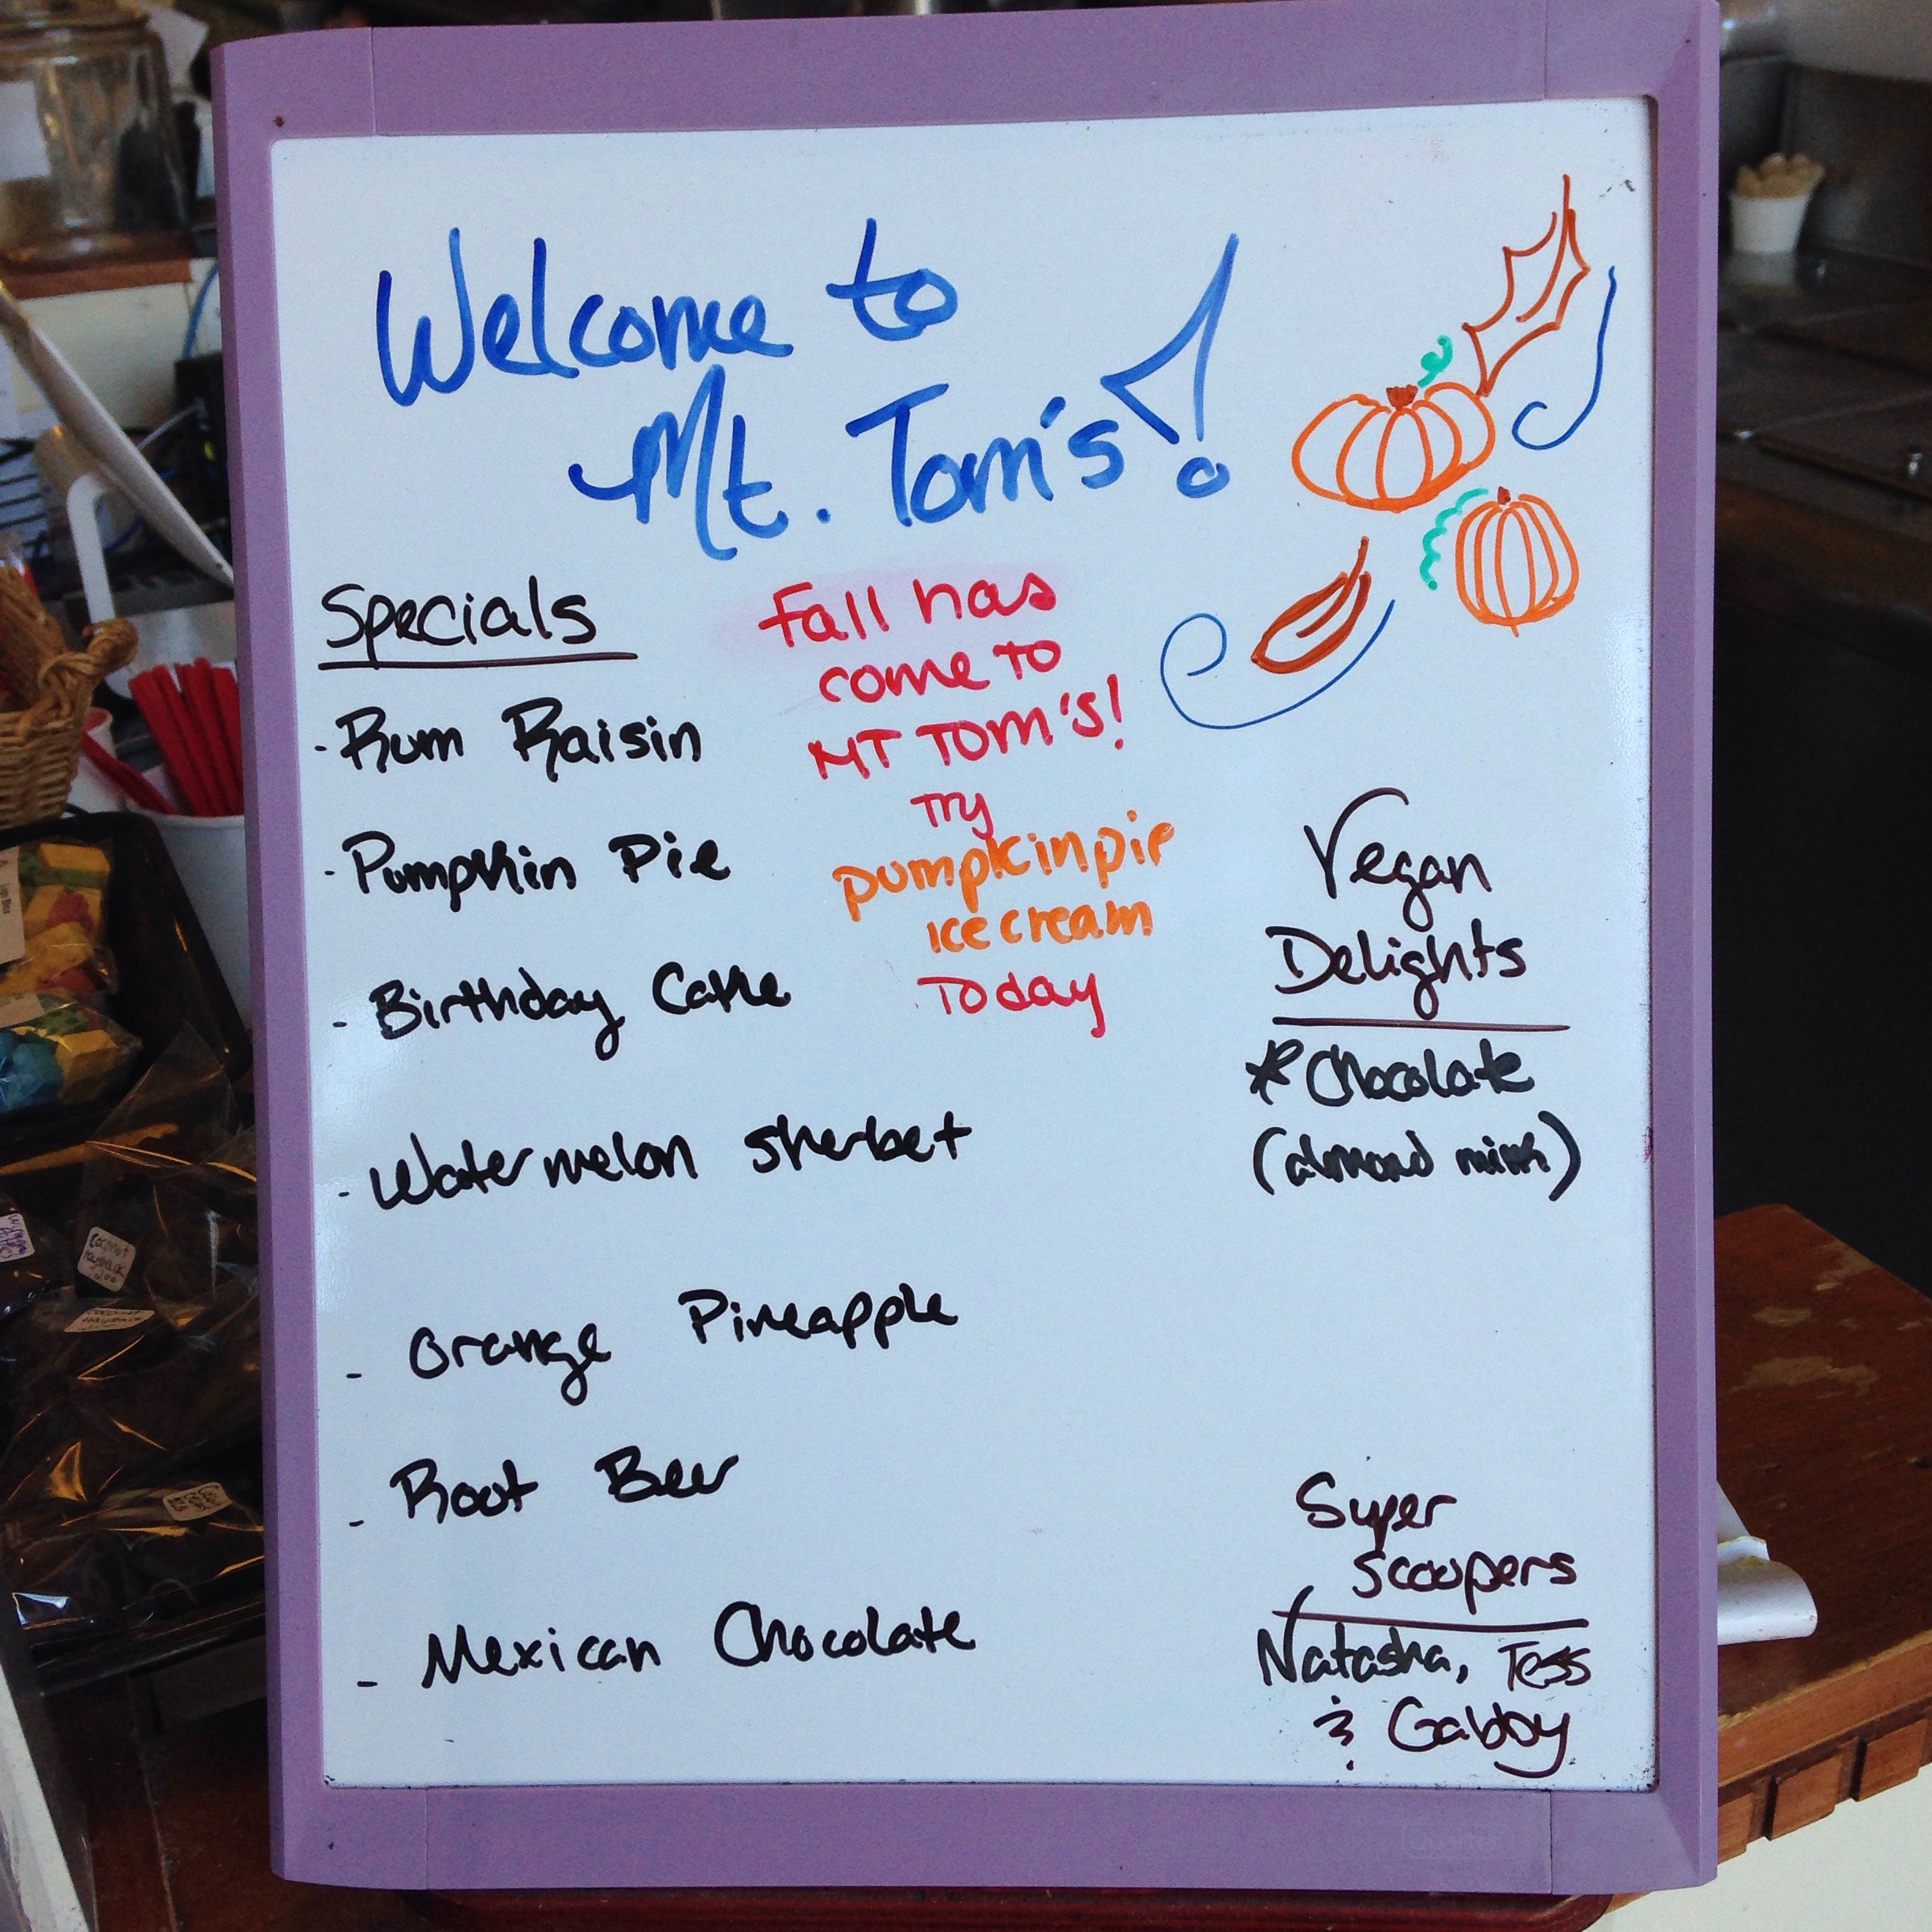 Welcome to
Mt. Tom's!
Specials
- Rum Raisin
- Pumpkin Pie
- Birthday Cake
- Watermelon sherbet
- Orange Pineapple
- Root Beer
- Mexican Chocolate
Fall has
come to
MT TOM'S!
Try
pumpkin pie
ice cream
Today
Vegan
Delights
* Chocolate
(almond milk)
Super
Scoopers
Natasha, Tess
& Gabby
Coconut